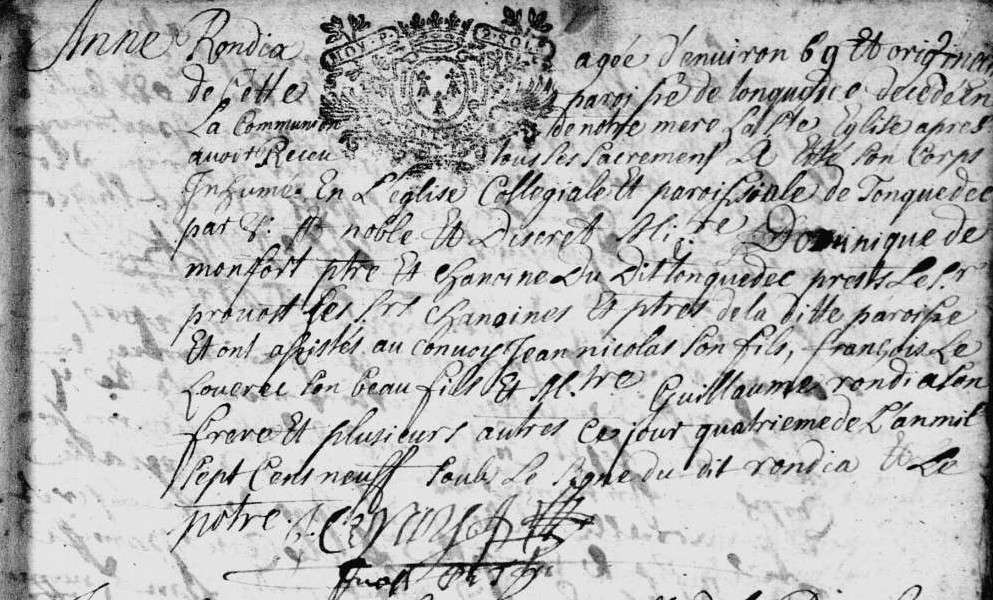 Anne Rondia MOY. P. 2. SOLS agée d'environ 69 et origin
de cette paroisse de tonquedec decedé en
La Communion de notre mere La Ste Eglise apres
avoir Receu tous les sacrement A Esté son Corps
Inhumé. En L'église Collegiale Et paroissiale de Tonquedec
par noble Et Discret Dominique de
monfort ptre Et chanoine Du Dit tonquedec prests Le Sr
provost Les Srs chanoines Et ptres de la ditte paroisse
Et ont assistés au convoy Jean nicolas son fils, françois Le
Loverec son beau fils Et Guillaume rondia son
frere Et plusieurs autres ce jour quatrieme de L'an mil
sept Cens neuff soub Le signe du dit rondia Et Le
notre.